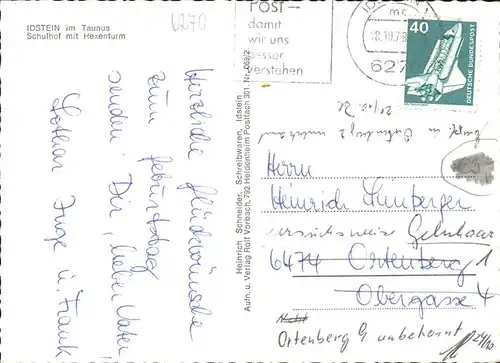 IDSTEIN im Taunus
Schulhof mit Hexenturm
6270
POST-
damit
wir uns
besser
verstehen
IDSTEIN
mc
18.10.78
627
40
DEUTSCHE BUNDESPOST
Herzliche Glückwünsche
zum Geburtstag
senden Dir, lieber Vater
Lothar Inge u. Frank
Heinrich Schneider, Schreibwaren, Idstein
Aufn. u. Verlag Rolf Vorbach, 792 Heidenheim Postfach 301. Nr. 069/2
Herrn
Heinrich
6474 Ortenberg 1
Obergasse 4
Nicht
Ortenberg 9 unbekannt
24/10